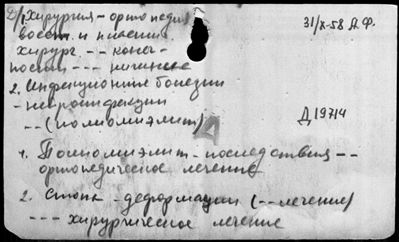 Д/1. Хирургия - ортопедия
31/X-58 А.Ф.
восст. и
хирург. -- конеч-
ности --- лечение
2. Инфекционные болезни
- нейроинфекции
-- (полиомиелит)
Д 19714
А
1. Полиомиэлит - последствия --
ортопедическое лечение
2. Стопа - деформации (-- лечение)
--- хирургическое лечение